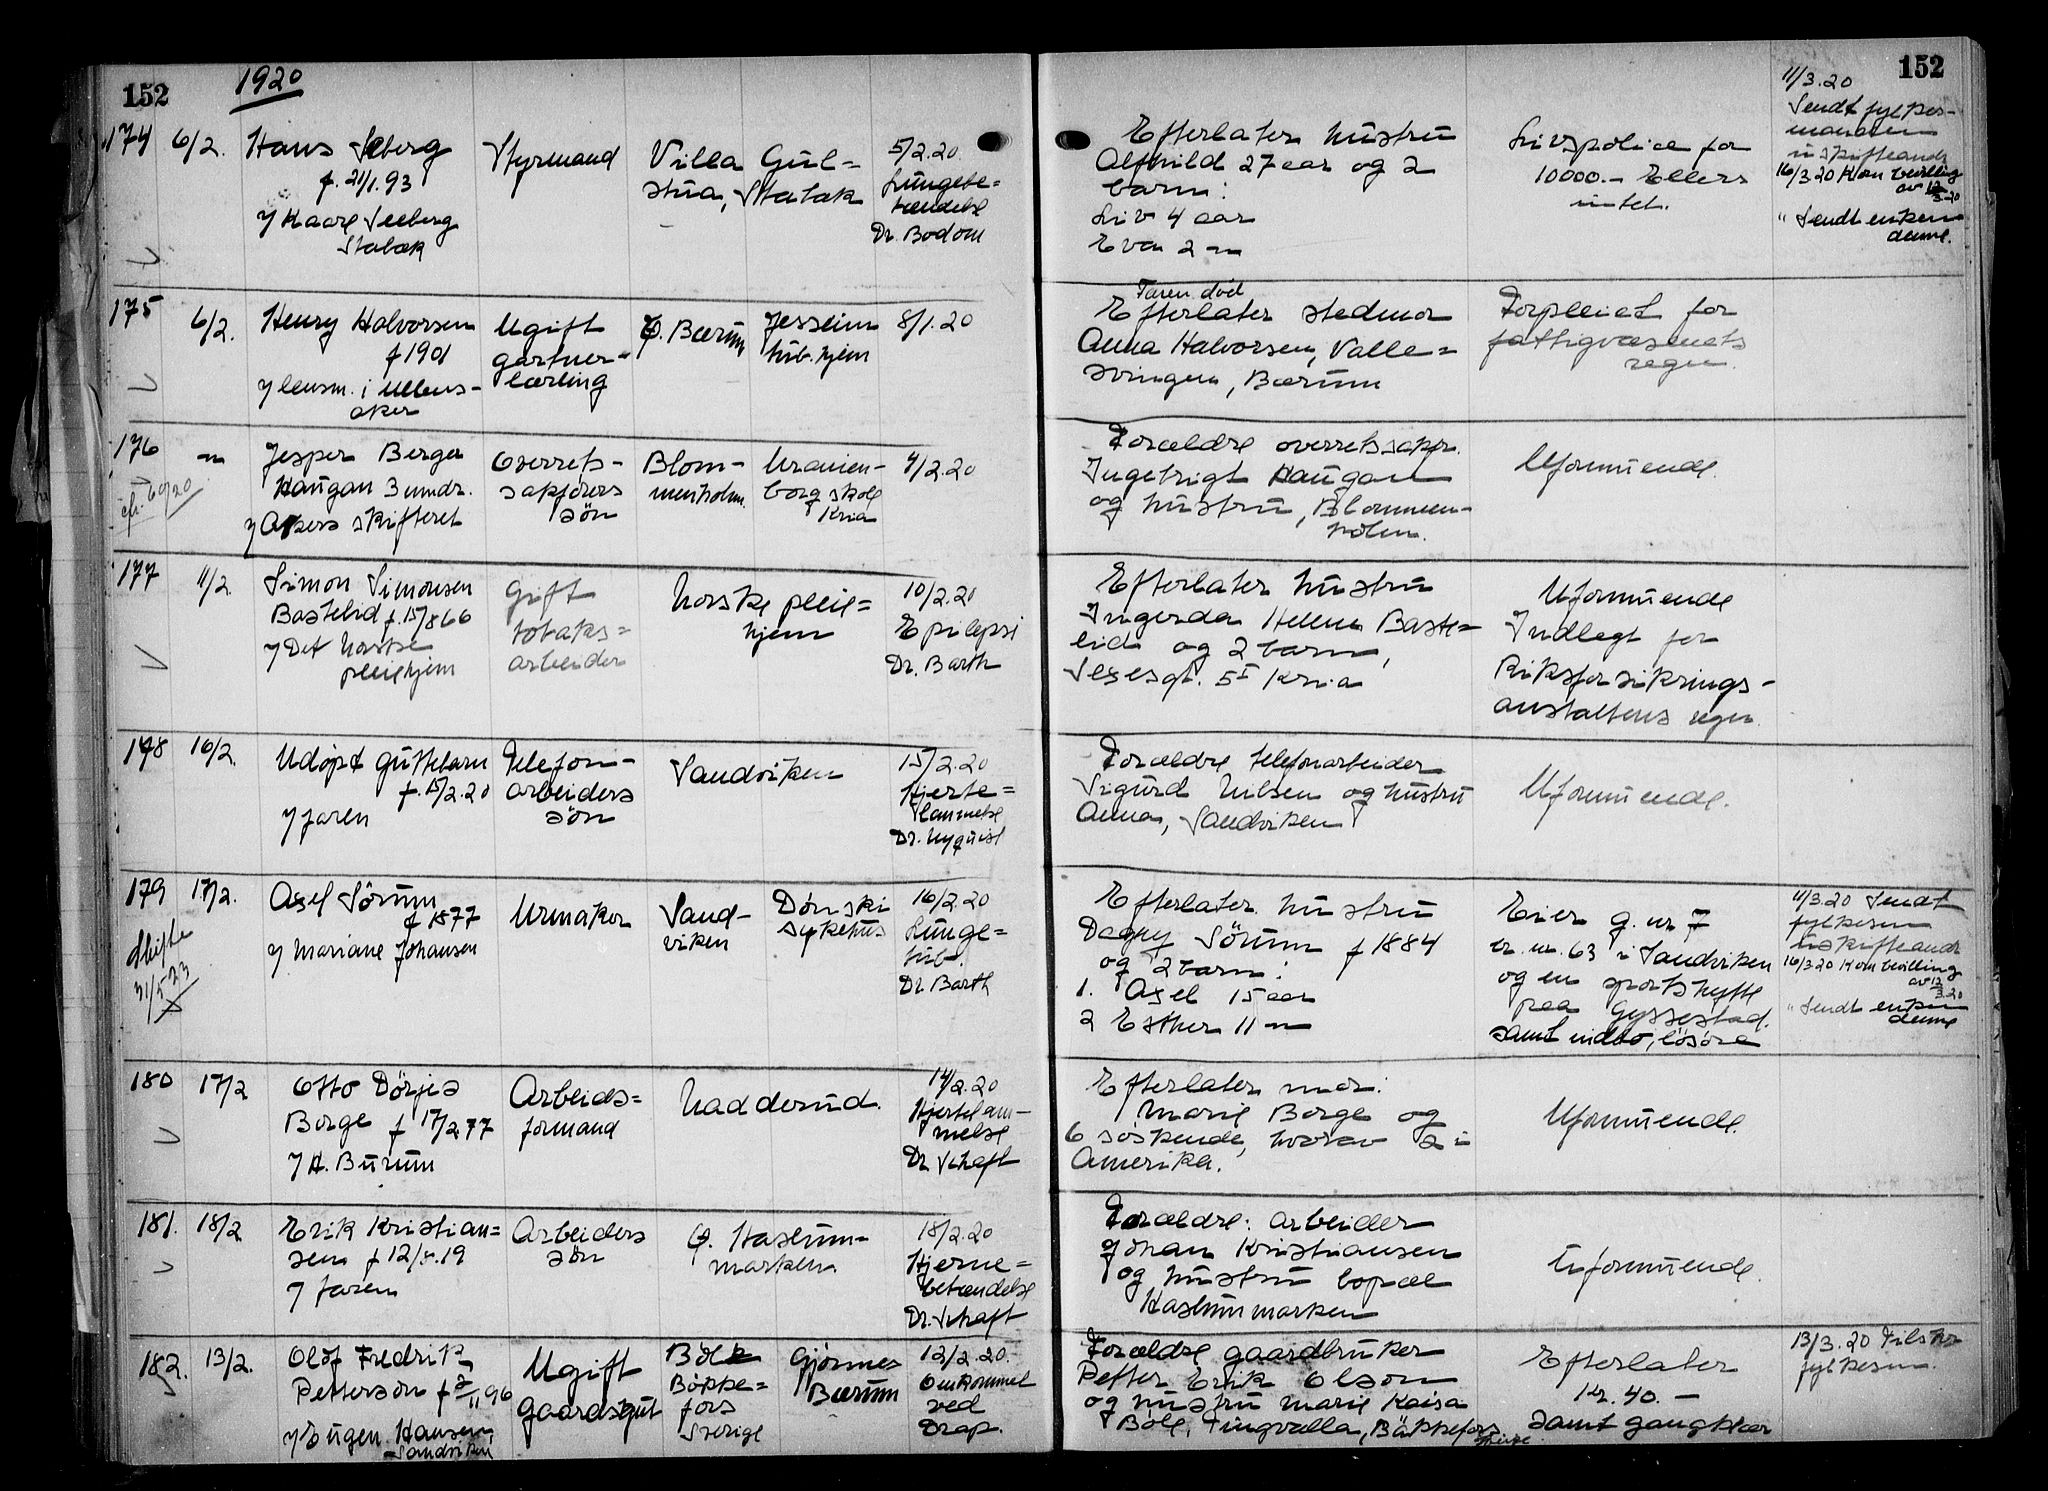 152
1920
174
6/2.
Hans Seeberg
f. 21/1.93
v/ Kaare Seeberg
Stabæk
Styrmand
Villa Gul=
stua, Stabæk
5/2.20.
Lungebe=
tændelse
Dr. Bodom
175
6/2.
Henry Halvorsen
f 1901
v/ lensm. i Ullens-
aker
Ugift
gartner=
lærling
Ø. Bærum
Jessheim
tub. hjem
8/1.20
176
Jesper Berger
Haugan 3 mndr.
v/ Akers skifteret
Overrets-
sakförers
sön
Blom-
menholm.
Uranien-
borg skole
Kria
4/2.20
177
11/2.
Simon Simonsen
Bastelid f. 15/8 66
v/ Det norske
pleiehjem
Gift
tobaks=
arbeider
Norske pleie=
hjem
10/2.20
Epilepsi
Dr. Barth
178
16/2.
Udøpt guttebarn
f. 15/2.20
v/ faren
Telefon-
arbeiders
sön
Sandviken
15/2.20
Hjerte=
lammelse
Dr. Nyquist
179
17/2.
Skifte
31/5 23
Axel Sörum
f 1877
v/ Mariane Johansen
Urmaker
Sand-
viken
Dönski
sykehus
16/2.20
Lunge=
tub.
Dr. Barth
180
17/2
Otto Dörjes
Borge f 17/2 77
v/ H. Burum
Arbeids=
formand
Nadderud.
14/2.20
Hjertelam-
melse
Dr. Schaft
181.
18/2
Erik Kristian=
sen f 12/8.19
v/ faren
Arbeiders
sön
Ö. Haslum-
marken.
18/2.20
Hjerne=
betændelse
Dr. Schaft
182.
13/2.
Olof Fredrik
Petterson f 2/11 96
v/ Eugen Hansen
Sandviken
Ugift
gaardsgut
Böle
Bökke=
fors
Sverige
Gjönnes
Bærum
12/2.20.
Omkommet
ved
Drap.
152
Efterlater hustru
Alfhild 27 aar og 2
barn:
Liv 4 aar
Eva 2 "
Livspolice for
10000.- Ellers
intet.
11/3.20
Sendt fylkes-
manden
uskifteandr
16/3 20 Kom bevilling
av 12/3.20
" Sendt enken
denne.
Faren död
Efterlater stedmor
Anna Halvorsen, Valle=
svingen, Bærum
Forpleiet for
fattigvæsenets
regn.
Forældre overretssakför.
Ingebrigt Haugan
og hustru, Blommen-
holm.
Uformuende.
Efterlater hustru
Ingerda Helene Baste=
lid og 2 barn,
Kria
Uformuende
Indlagt for
Riksforsikrings-
anstaltens regn.
Forældre telefonarbeider
Sigurd Nilsen og hustru
Anna, Sandviken
Uformuende.
Efterlater hustru
Dagny Sörum f 1884
og 2 barn:
1. Axel 15 aar
2 Esther 11 "
Eier g. nr 7
br. nr. 63 i Sandviken
og en sportshytte
paa Gyssestad.
samt indbo, lösöre
11/3.20 Sendt
fylkesm
uskifteandr
16/3 20 Kom bevilling
av 12/3.20
" Sendt enken
denne
Efterlater mor:
Marie Borge og
6 söskende, hvorav 2 i
Amerika.
Uformuende.
Forældre: arbeider
Johan Kristiansen
og hustru bopæl
Haslummarken
Uformuende.
Forældre gaardbruker
Petter Erik Olsson
og hustru Marie Kaisa
Böle, Tingvalla, Bäkkefors
Efterlater
Kr. 40.-
samt gangklær
13/3.20 Tilskr
fylkesm.